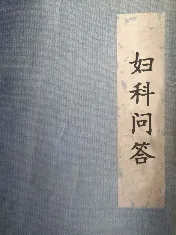 妇科问答